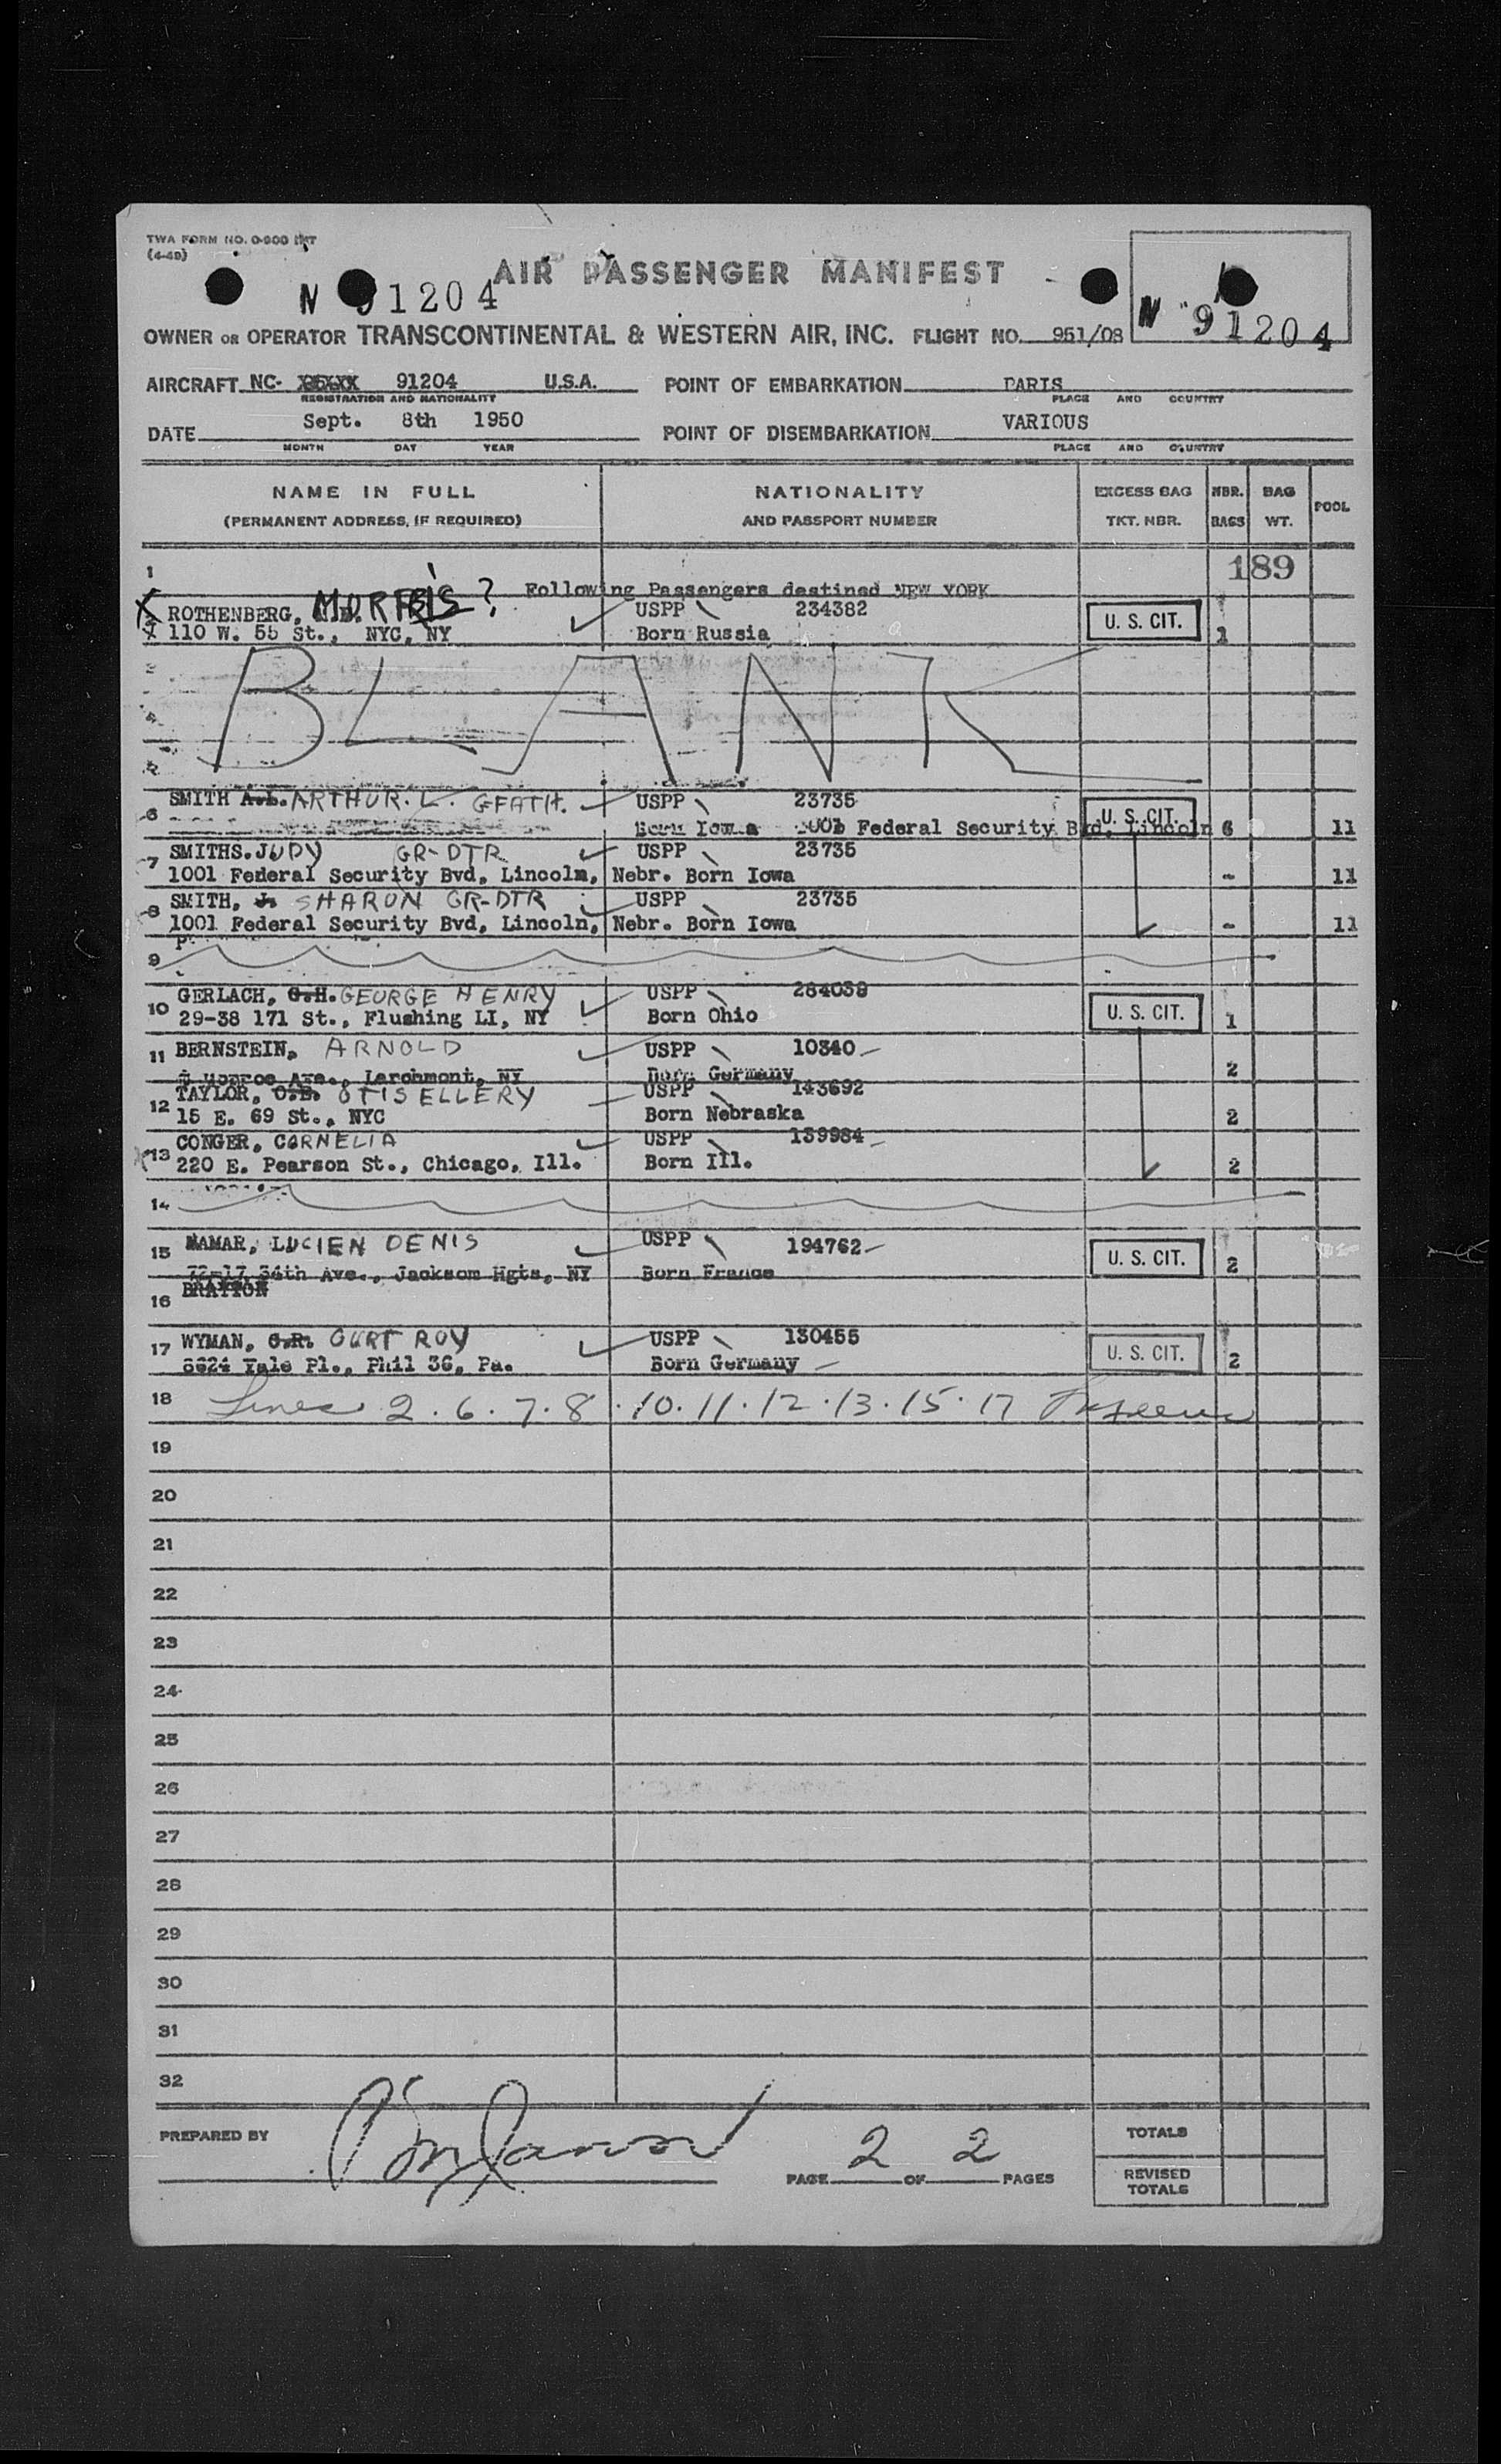 TWA FORM NO. 0-900 INT
(4-49)
AIR PASSENGER MANIFEST
N 91204
N 91204
OWNER OR OPERATOR TRANSCONTINENTAL & WESTERN AIR, INC. FLIGHT NO. 951/08
AIRCRAFT NC- 91204 U.S.A. POINT OF EMBARKATION PARIS
REGISTRATION AND NATIONALITY PLACE AND COUNTRY
DATE Sept. 8th 1950 POINT OF DISEMBARKATION VARIOUS
MONTH DAY YEAR PLACE AND COUNTRY
NAME IN FULL NATIONALITY EXCESS BAG NBR. BAG POOL
(PERMANENT ADDRESS, IF REQUIRED) AND PASSPORT NUMBER TKT. NBR. BAGS WT.
1 189
Following Passengers destined NEW YORK
ROTHENBERG, MORRIS? USPP 234382 U. S. CIT.
110 W. 55 St., NYC, NY Born Russia 1
BLANK
SMITH A.L. ARTHUR. L. GFATH. USPP 23735 U. S. CIT.
6 Born Iowa 1001 Federal Security Bvd, Lincoln 6 11
SMITHS. JUDY GR-DTR USPP 23735
7 1001 Federal Security Bvd, Lincoln, Nebr. Born Iowa - 11
SMITH, J. SHARON GR-DTR USPP 23735
8 1001 Federal Security Bvd, Lincoln, Nebr. Born Iowa - 11
9
GERLACH, G.H. GEORGE HENRY USPP 284039 U. S. CIT.
10 29-38 171 St., Flushing LI, NY Born Ohio 1
11 BERNSTEIN, ARNOLD USPP 10340
Monroe Ave., Larchmont, NY Born Germany 2
TAYLOR, O.E. OTIS ELLERY USPP 143692
12 15 E. 69 St., NYC Born Nebraska 2
CONGER, CORNELIA USPP 139984
13 220 E. Pearson St., Chicago, Ill. Born Ill. 2
14
15 MAMAR, LUCIEN DENIS USPP 194762 U. S. CIT. 2
72-17 34th Ave., Jackson Hgts, NY Born France
16 BRATTON
17 WYMAN, C.R. CURT ROY USPP 130455 U. S. CIT.
6624 Yale Pl., Phil 36, Pa. Born Germany 2
18 Lines 2. 6. 7. 8. 10. 11. 12. 13. 15. 17
19
20
21
22
23
24
25
26
27
28
29
30
31
32
PREPARED BY PAGE 2 OF 2 PAGES
TOTALS
REVISED
TOTALS